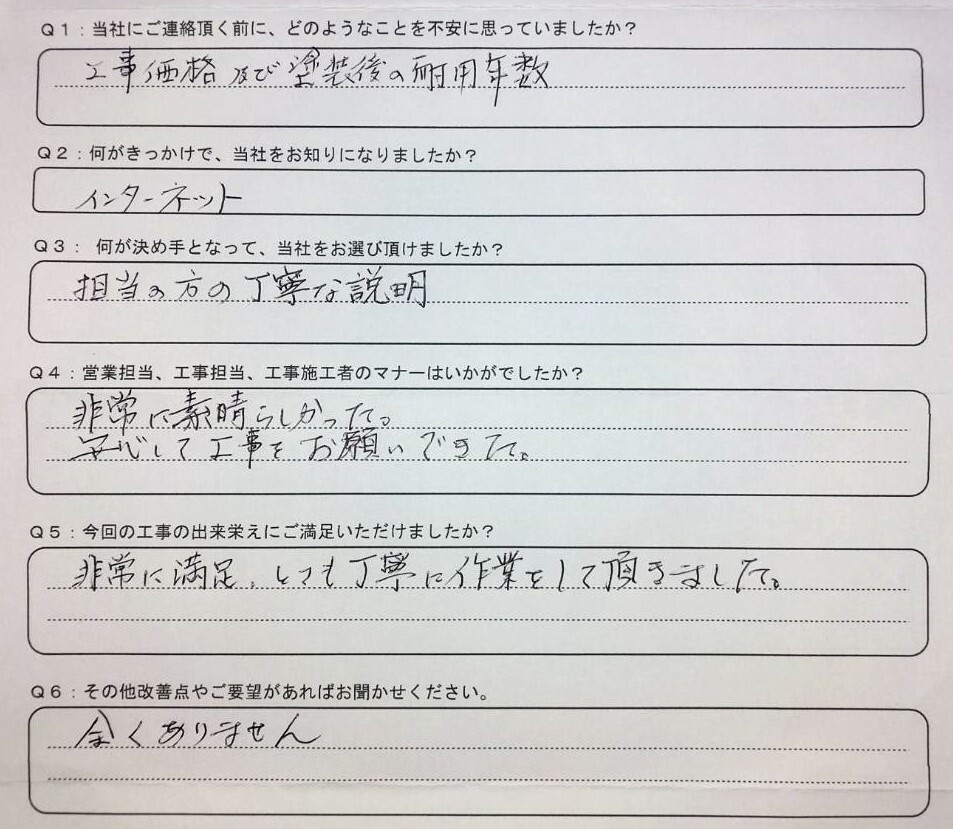 Q1：当社にご連絡頂く前に、どのようなことを不安に思っていましたか？
工事価格及び塗装後の耐用年数
Q2：何がきっかけで、当社をお知りになりましたか？
インターネット
Q3： 何が決め手となって、当社をお選び頂けましたか？
担当の方の丁寧な説明
Q4：営業担当、工事担当、工事施工者のマナーはいかがでしたか？
非常に素晴らしかった。
安心して工事をお願いできた。
Q5：今回の工事の出来栄えにご満足いただけましたか？
非常に満足。とても丁寧に作業をして頂きました。
Q6：その他改善点やご要望があればお聞かせください。
全くありません